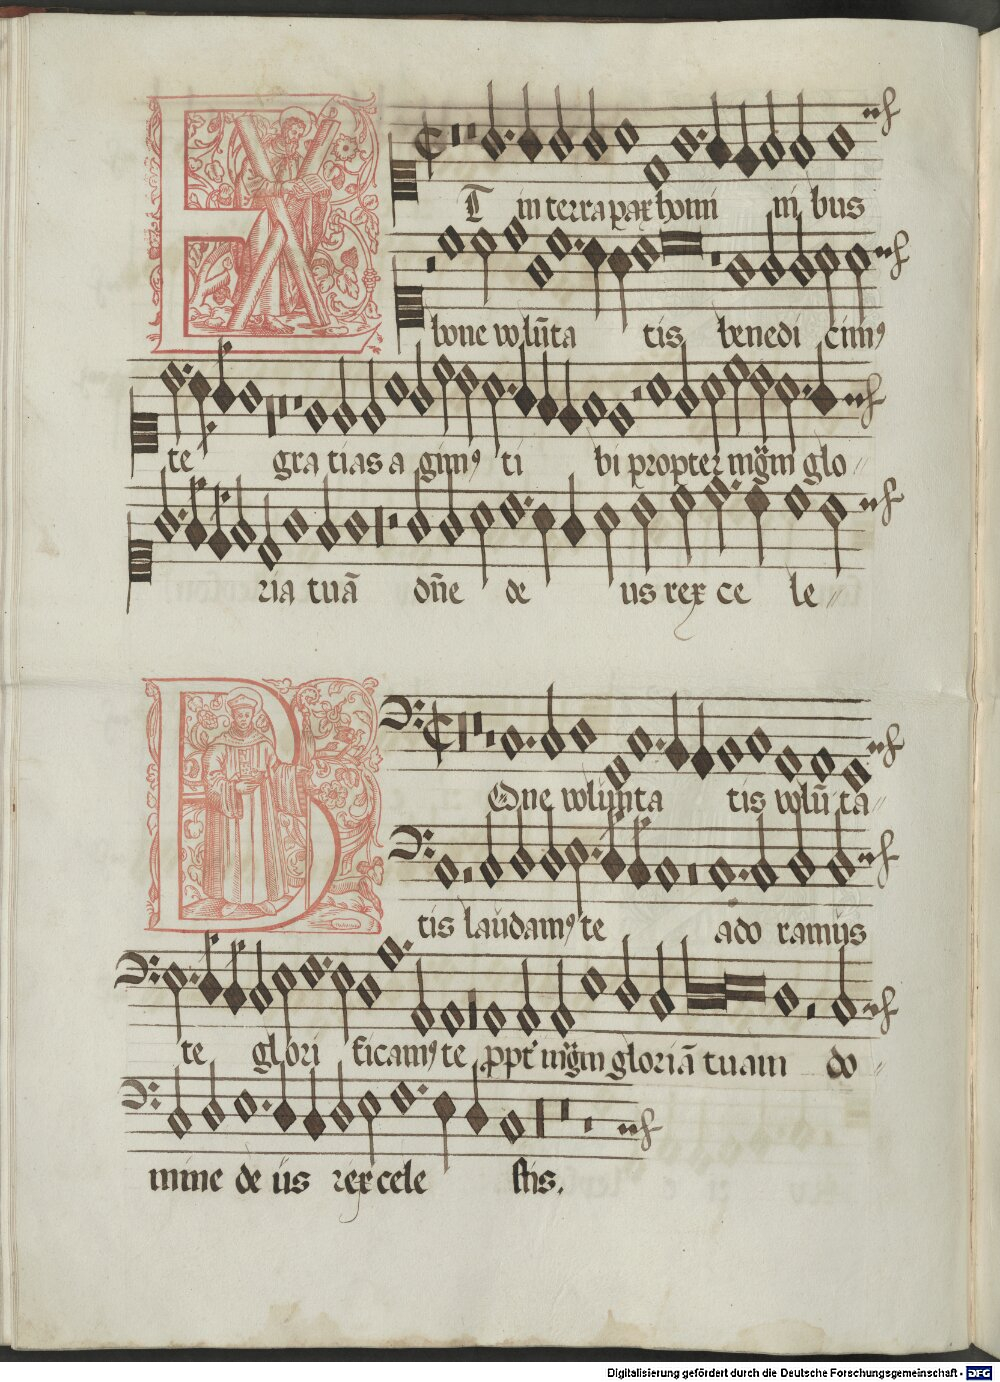 ET in terra pax homi ni bus
bone volūta tis benedi cimꝰ
te gra tias a gimꝰ ti bi propter mḡm glo
ria tuā dñe de us rex ce le
BOne volunta tis volū ta
tis laudamꝰ te ado ramus
te glori ficamꝰ te ꝓpt' mḡm gloriā tuam do
mine de us rex cele stis.
Digitalisierung gefördert durch die Deutsche Forschungsgemeinschaft - DFG